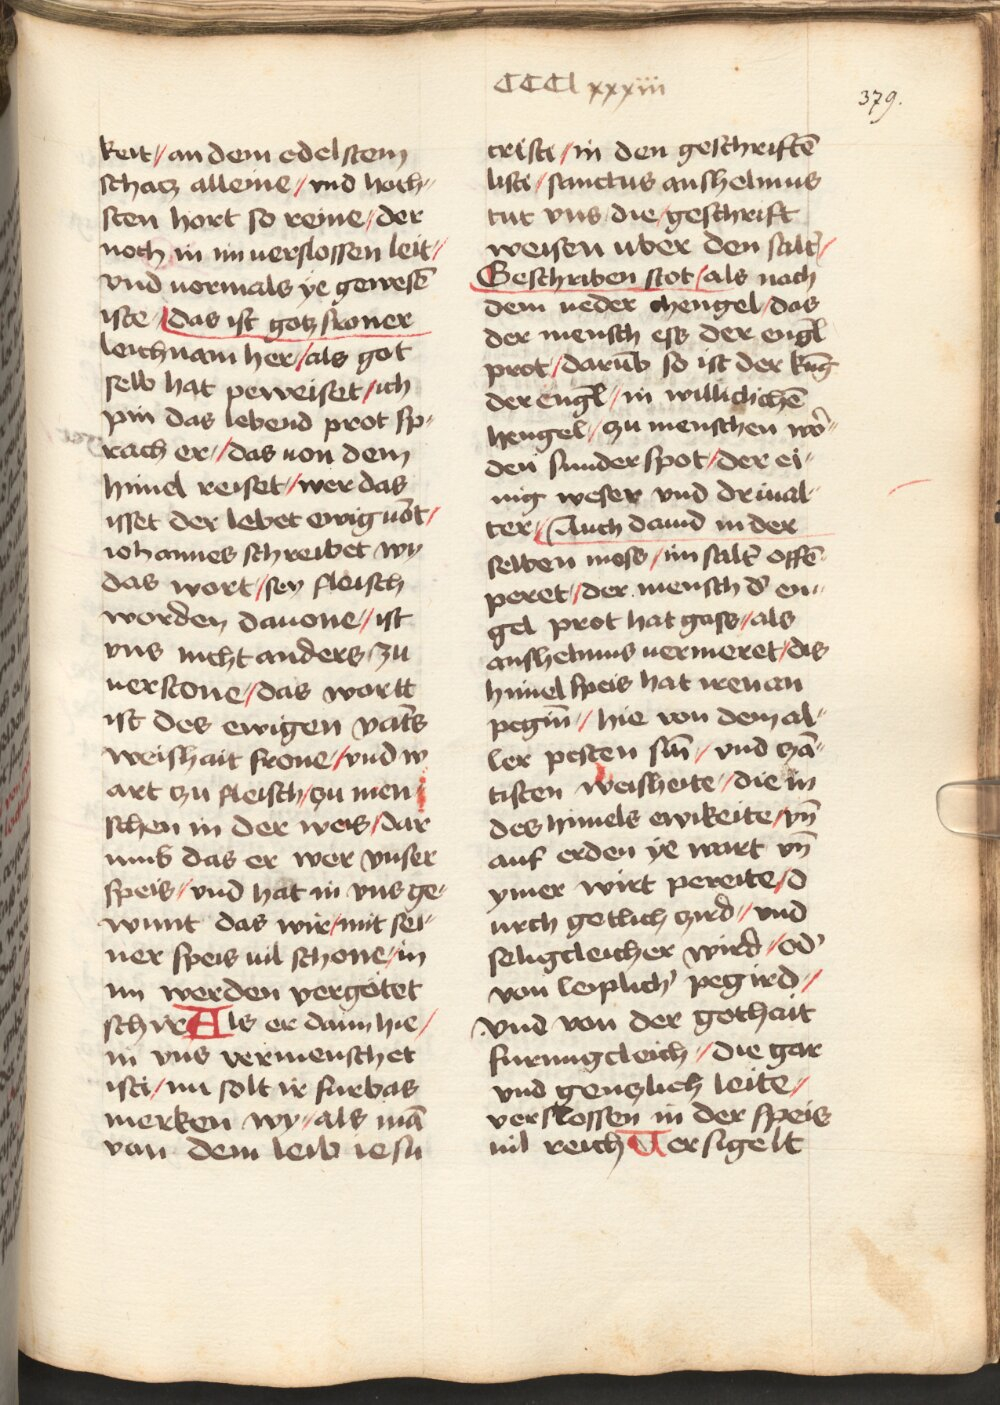 CCCl xxxiii
379.
keit // an dem edelstem
schacz alleine / vnd hoch//
sten hort so reine / der
noch in im uerslossen leit //
vnd uormals ye gewesē
iste / das ist gotz froner
leichnam her / als got
selb hat peweiset / ich
pin das lebend prot sp//
rach er // das uon dem
himel reiset / wer das
isset der lebet ewig /
iohannes schreibet wy
das wort / sey fleisch
worden dauone // ist
vns nicht anders zu
uerstone / das wortt
ist des ewigen vat's
weishait frone / vnd w
art zu fleisch / zu men
schen in der weis / dar
umb das er wer vnser
speis / vnd hat in vns ge//
wunt das wir / mit sei//
ner speis uil schone / in
im werden vergötet
schire Als er dann hie /
in vns vermenschet
isti / nu solt ir furbas
merken wy / als mā
van dem leib iesu
cristi / in den geschriftē
listi / sanctus anshelmus
tut vns / die / geschrift
weisen uber den salt' /
Geschriben stot / als nach
dem ueder chengel / das
der mensch ess der engl
prot / darūb so ist der kūg
der engl / in willichichē
hengel / zu menschen wo'//
den sunder spot / der ei//
nig weser vnd driual//
ter / Auch dauid in der
selben moss / im salt' offē
peret / der mensch d' en//
gel prot hat gass // als
anshelmus uermeret / dis
himel speis hat iren an
pegin̄ // hie von dem al//
ler pesten sin̄ / vnd
tisten weisheite / die in
des himels ewikeite / vn̄
auf erden ye wart vn̄
ymer wirt pereite / d
urch getlich zird // vnd
seligcleicher wird // od'
von leiplich' pegird //
vnd von der gothait
furungcleich // die gar
vnd genczlich leite /
verslossen in der speis
uil reich Versigelt